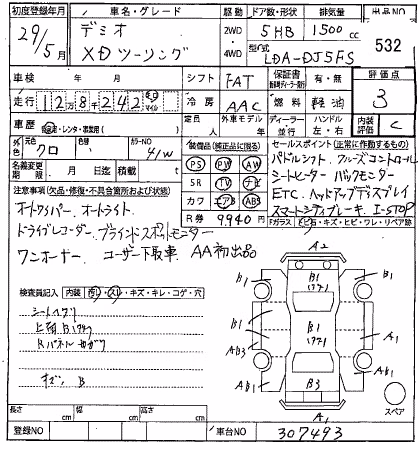 初度登録年月 車名・グレード 駆動 ドア数・形状 排気量 出品NO
29/5月 デミオ XDツーリング 2WD 4WD 5HB 1500cc 532
型式 LDA-DJ5FS
車検 年 月 シフト FAT 保証書 有・無 評価点
走行 12万8千242 冷房 AAC 燃料 軽油 3
車歴 レンタ・ 定員 人 外車モデル 年 ディーラー 並行 ハンドル 左・右 内装 C
外装色 クロ カラーNO 41W 装備品(純正品に限る) セールスポイント(正常に作動するもの)
PS PW AW パドルシフト クルーズコントロール
名義変更期限 月 日迄 積載 t SR TV ナビ シートヒーター バックモニター
注意事項(欠品・修復・不具合箇所および状態) カワ エアB ABS ETC ヘッドアップディスプレイ
オートワイパー オートライト R券 9940円 スマートシティブレーキ i-STOP
ドライブレコーダー ブラインドスポットモニター Fガラス 石・キズ・ヒビ・ワレ・リペア跡
ワンオーナー ユーザー下取車 AA初出品
A2
検査員記入 内装 汚レ・スレ・キズ・キレ・コゲ・穴
B1
B1
B1
シート
B1
A1
A1
AB3
AB1
B
B3
AB1
スペア
A1
長さ cm 幅 cm 高さ cm
登録NO 車台NO 307493